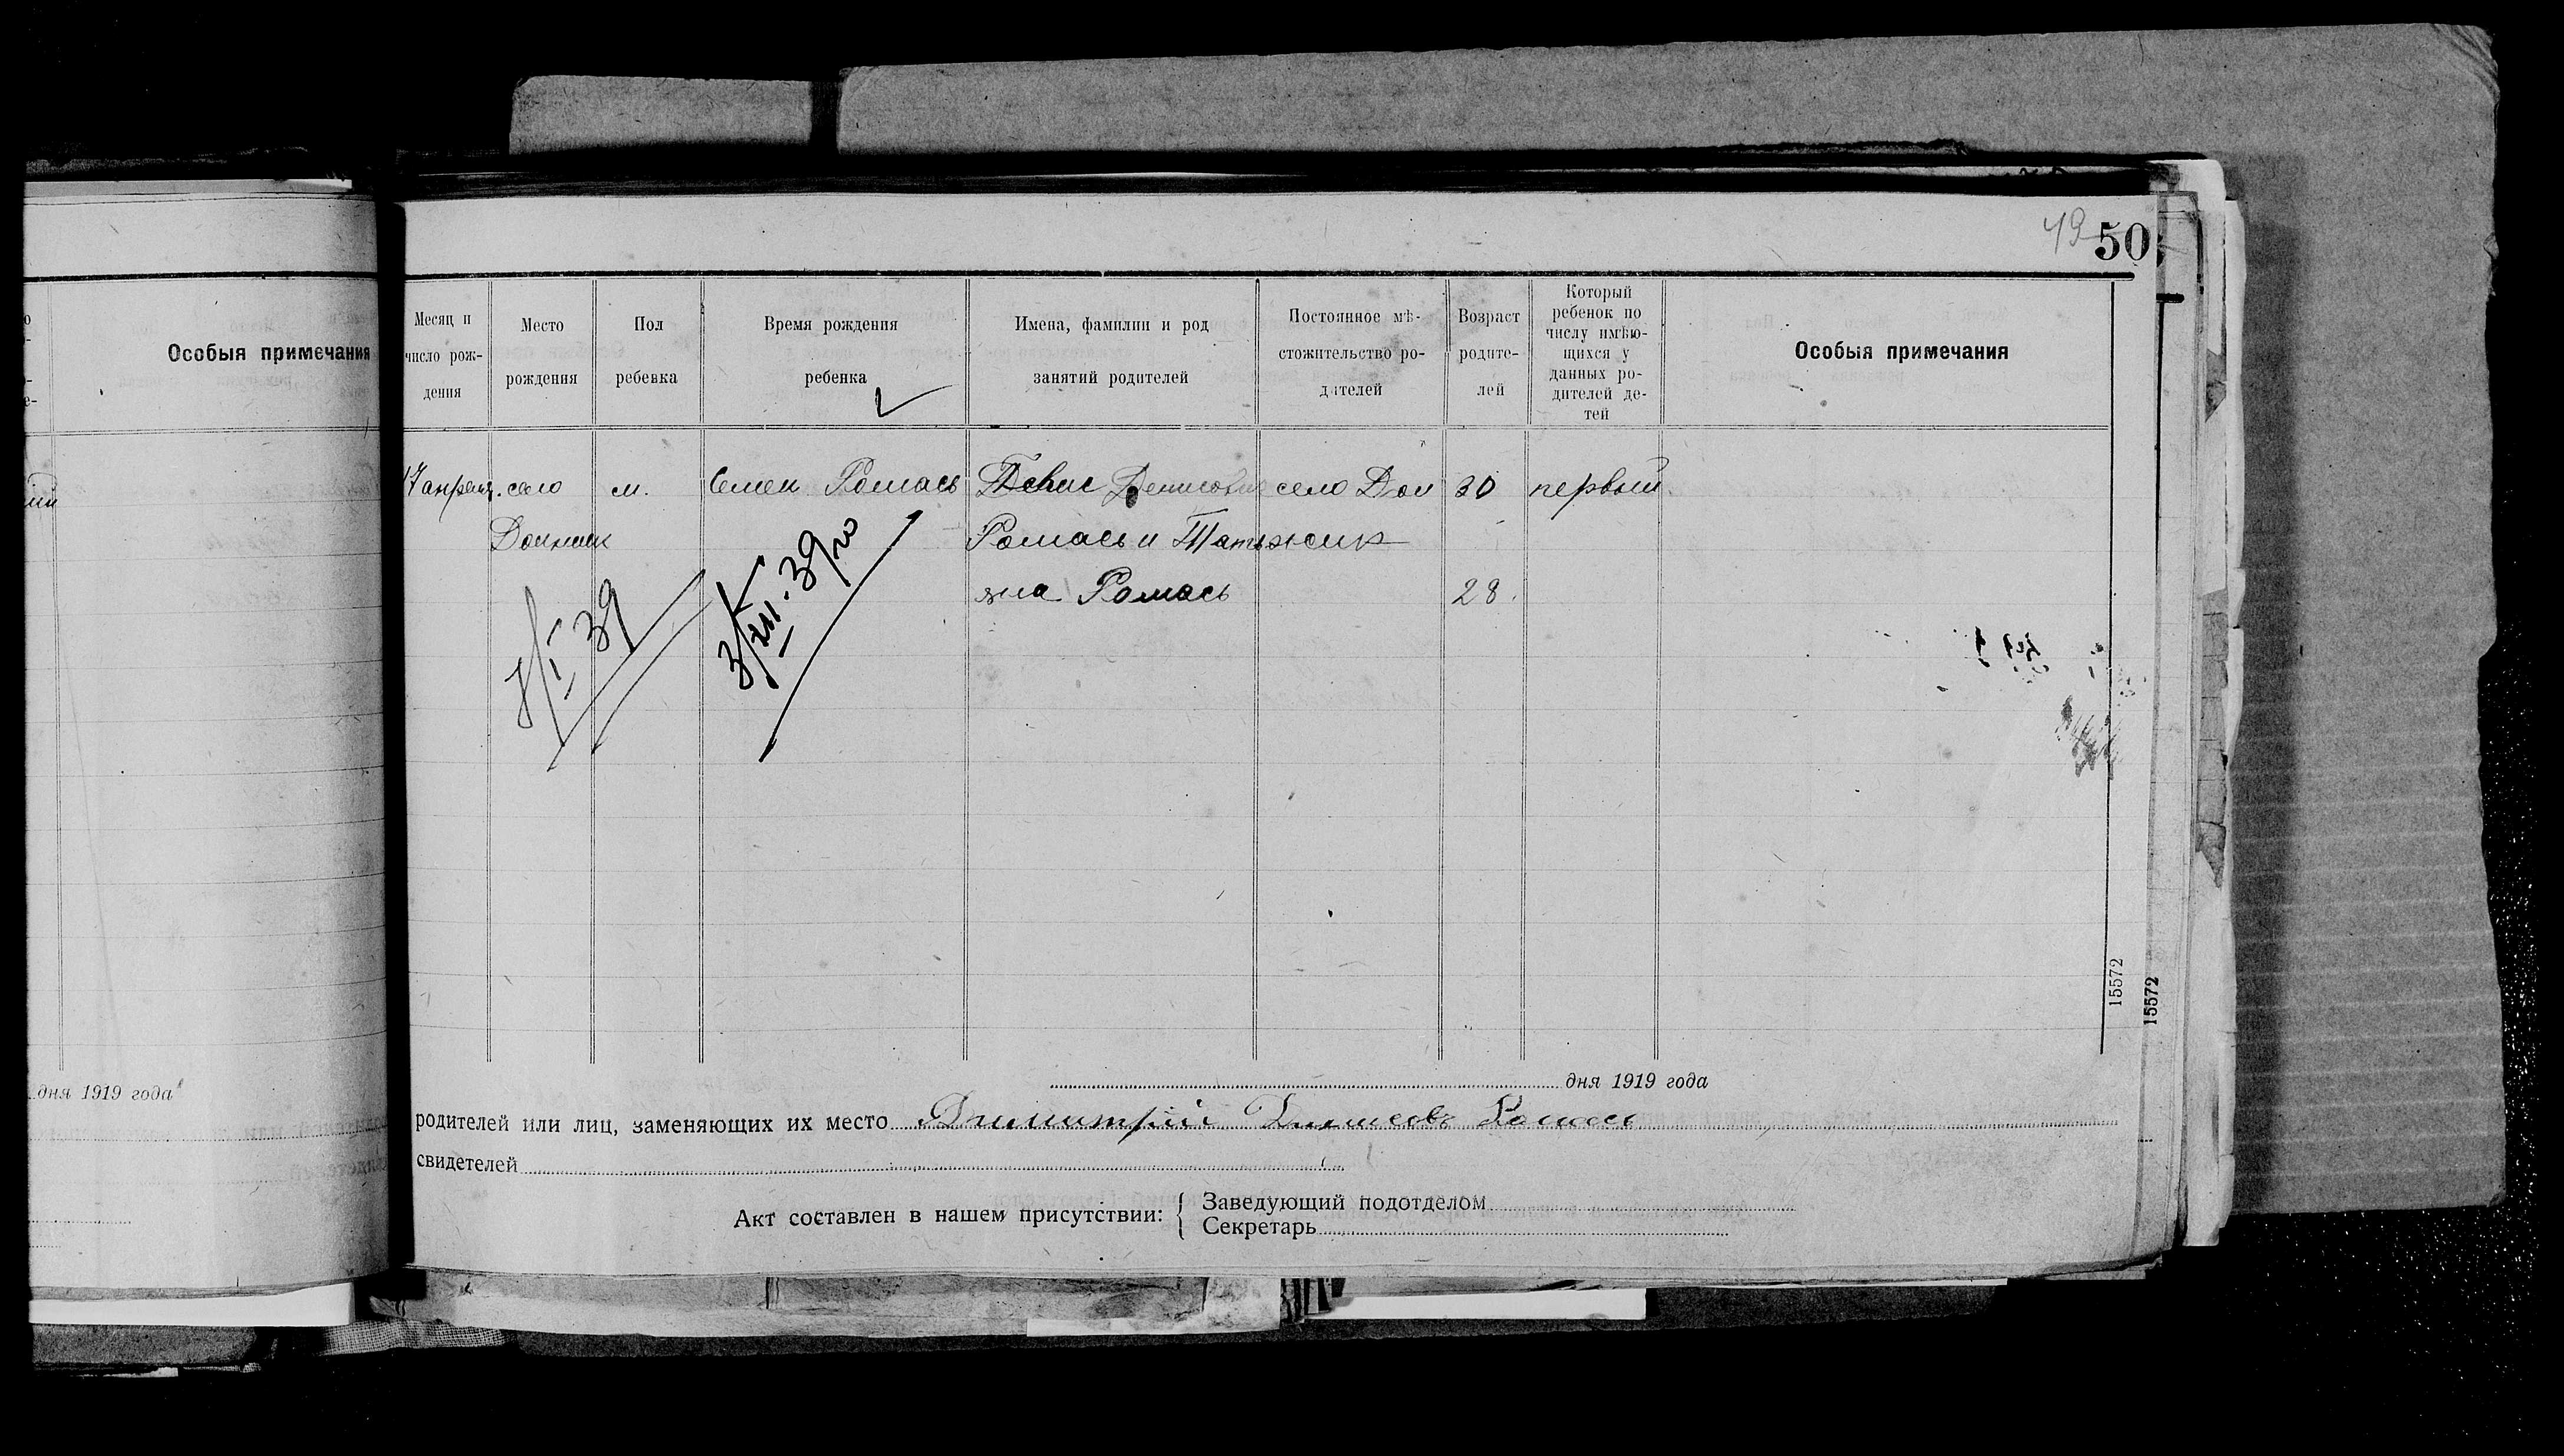 49 50
Особыя примечания
дня 1919 года
Месяц и число рождения
Место рождения
Пол ребенка
Время рождения ребенка
Имена, фамилии и род занятий родителей
Постоянное мѣстожительство родителей
Возраст родителей
Который ребенок по числу имѣющихся у данных родителей детей
Особыя примечания
17 апреля. село м. Семен Ромась Денисович село Дой 30 первый
Дойник Ромась и Татья
на Ромась 28.
3/XII. 39 го
I 39
15572
15572
дня 1919 года
родителей или лиц, заменяющих их место Димитрій Ромась
свидетелей
Акт составлен в нашем присутствии: { Заведующий подотделом
Секретарь